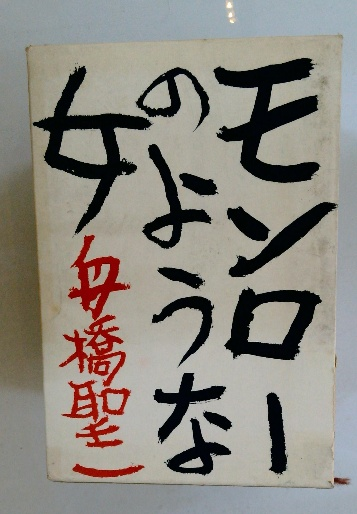 モンロー
のような
女
舟橋聖一